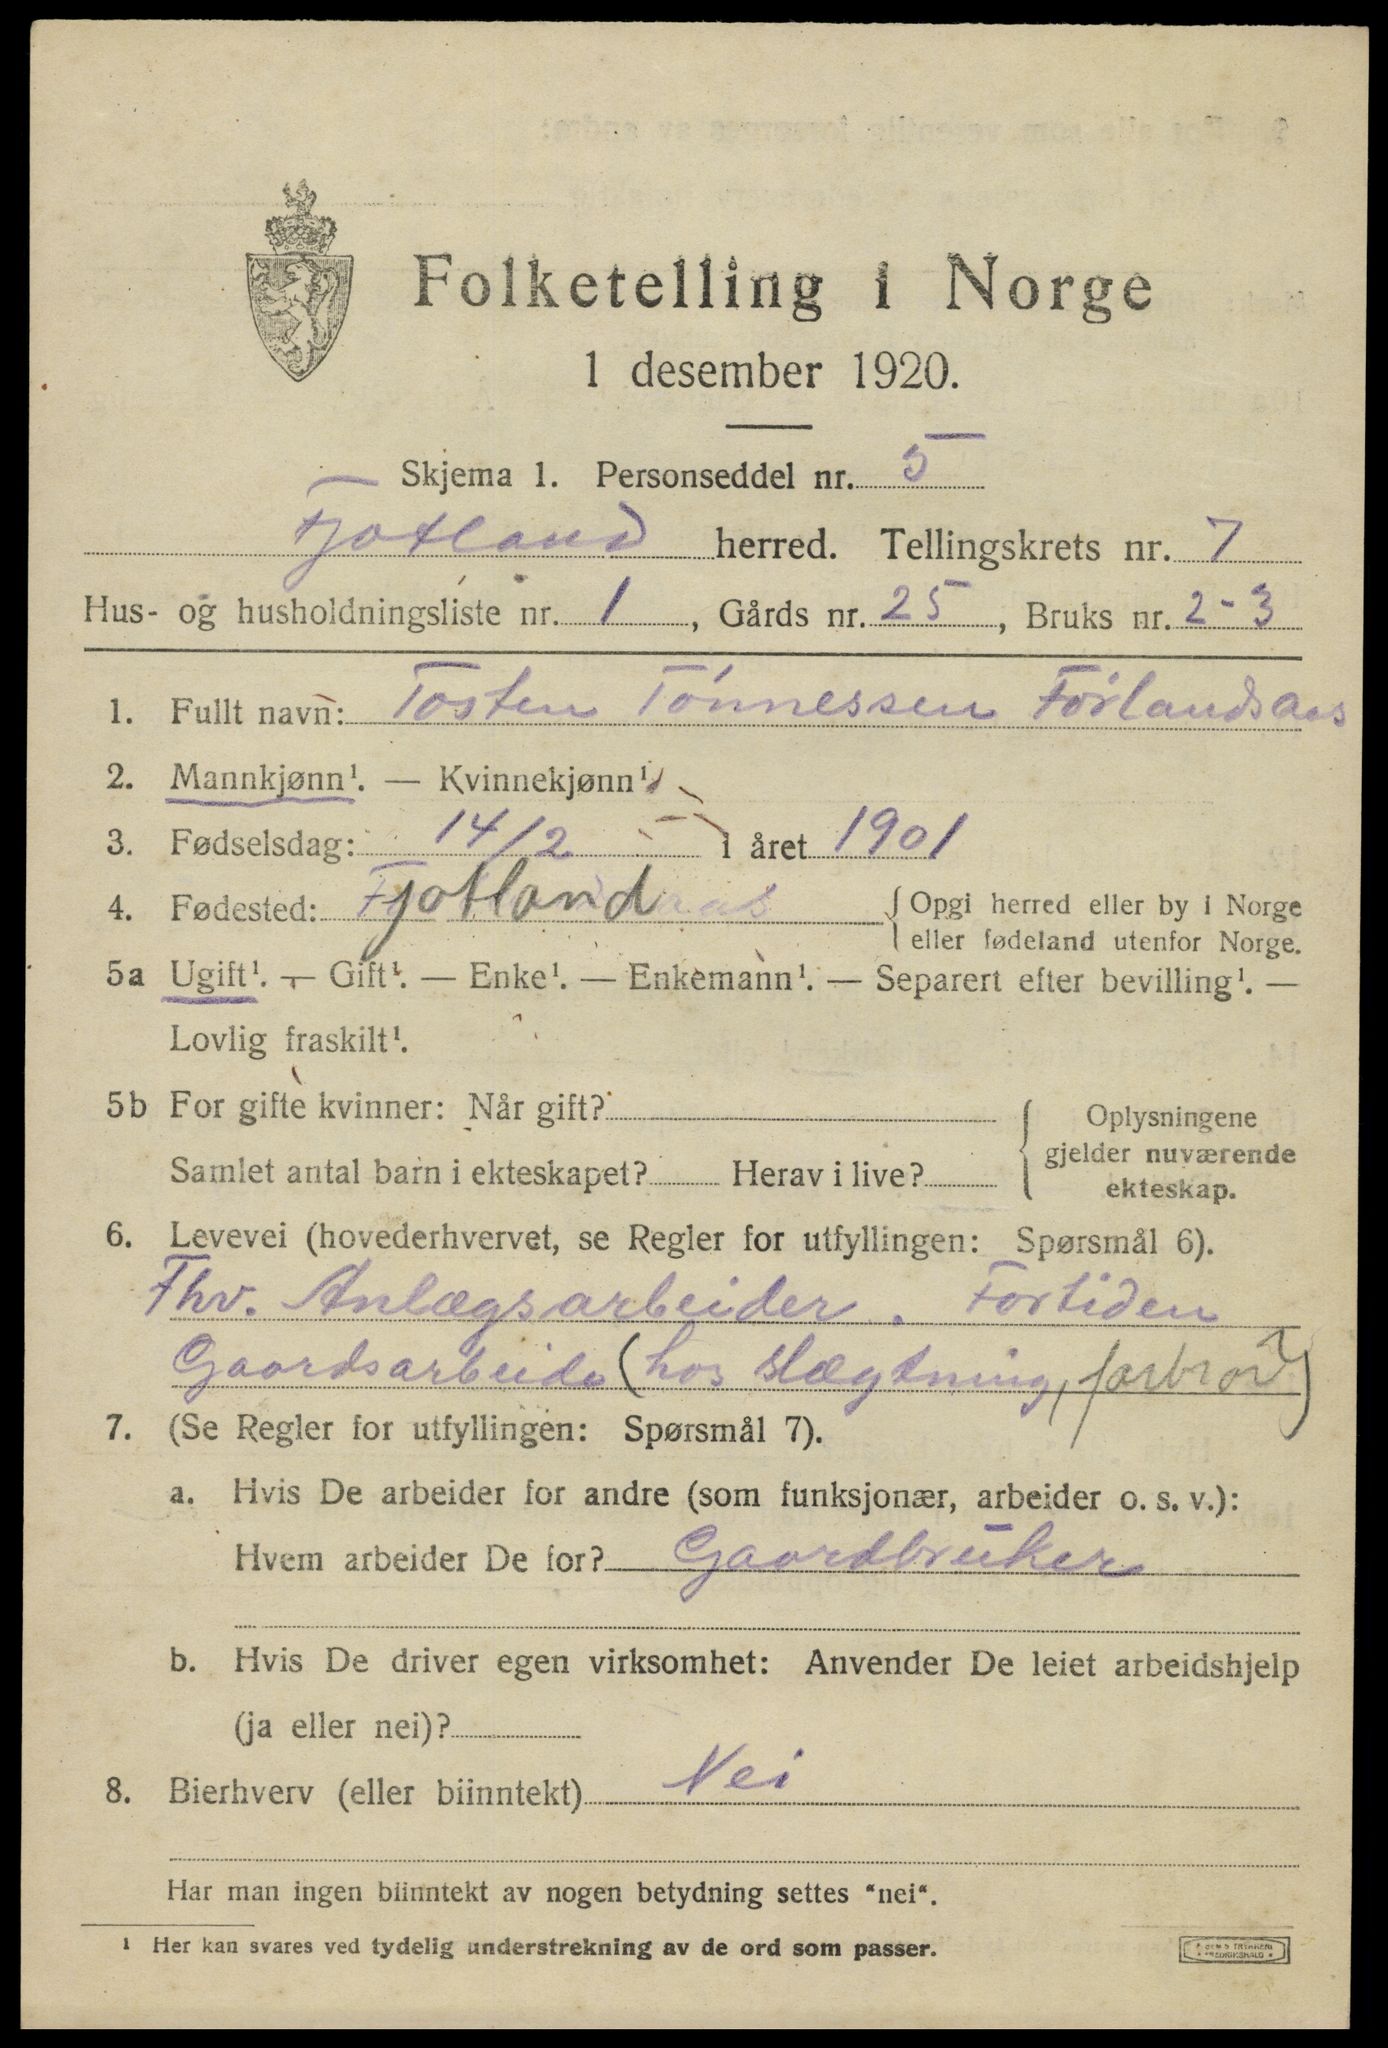 Folketelling i Norge
1 desember 1920.
Skjema 1. Personseddel nr. 5
Fjotland herred. Tellingskrets nr. 7
Hus- og husholdningsliste nr. 1, Gårds nr. 25, Bruks nr. 2-3
1. Fullt navn: Tosten Tónnessen Fórlandsaas
2. Mannkjønn¹. — Kvinnekjønn¹.
3. Fødselsdag: 14/2 i året 1901
4. Fødested: Fjotland { Opgi herred eller by i Norge
eller fødeland utenfor Norge.
5a Ugift¹. — Gift¹. — Enke¹. — Enkemann¹. — Separert efter bevilling¹. —
Lovlig fraskilt¹.
5b For gifte kvinner: Når gift? { Oplysningene
gjelder nuværende
ekteskap.
Samlet antal barn i ekteskapet? Herav i live?
6. Levevei (hovederhvervet, se Regler for utfyllingen: Spørsmål 6).
Fhv. Anlægsarbeider. Fortiden
Gaardsarbeide (hos slægtning, farbror?)
7. (Se Regler for utfyllingen: Spørsmål 7).
a. Hvis De arbeider for andre (som funksjonær, arbeider o. s. v.):
Hvem arbeider De for? Gaardbruker
b. Hvis De driver egen virksomhet: Anvender De leiet arbeidshjelp
(ja eller nei)?
8. Bierhverv (eller biinntekt) Nei
Har man ingen biinntekt av nogen betydning settes "nei".
¹ Her kan svares ved tydelig understrekning av de ord som passer.